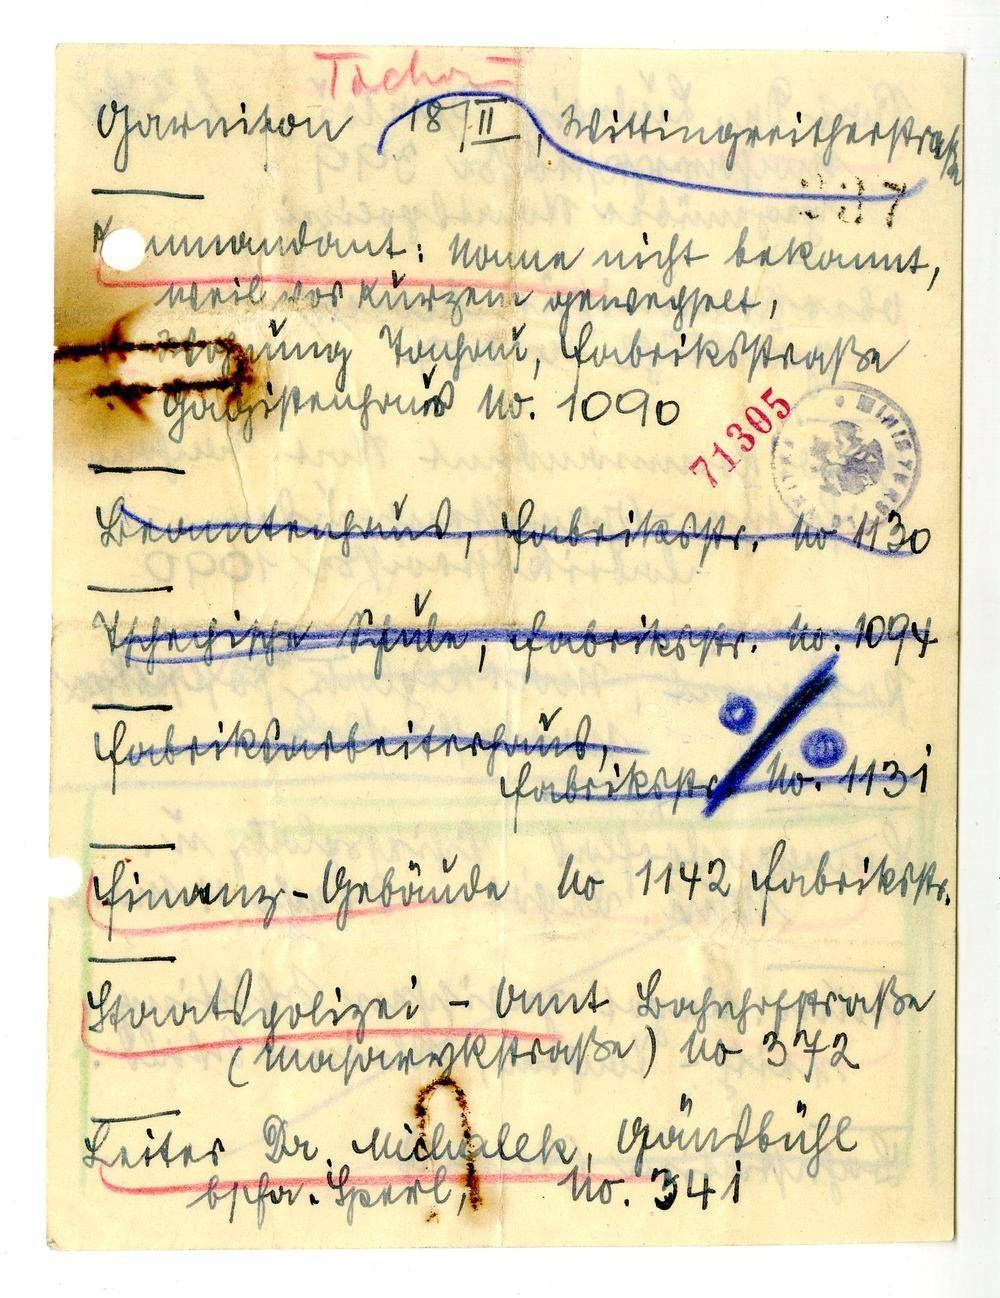 Tachau
Garnison 18/II, Wittingreitherstraße
337
Kommandant: Name nicht bekannt,
weil vor kurzem gewechselt,
Wohnung Tachau, Fabriksstraße
Gagistenhaus No. 1090
71305
MINISTERS
Beamtenhaus, Fabriksstr. No 1130
Tschechische Schule, Fabriksstr. No. 1094
Fabriksarbeiterhaus,
Fabriksstr. No. 1131
Finanz-Gebäude No 1142 Fabriksstr.
Staatspolizei-Amt Bahnhofstraße
(Masarykstraße) No 372
Leiter Dr. Michalek, Gänsbühl
No. 341